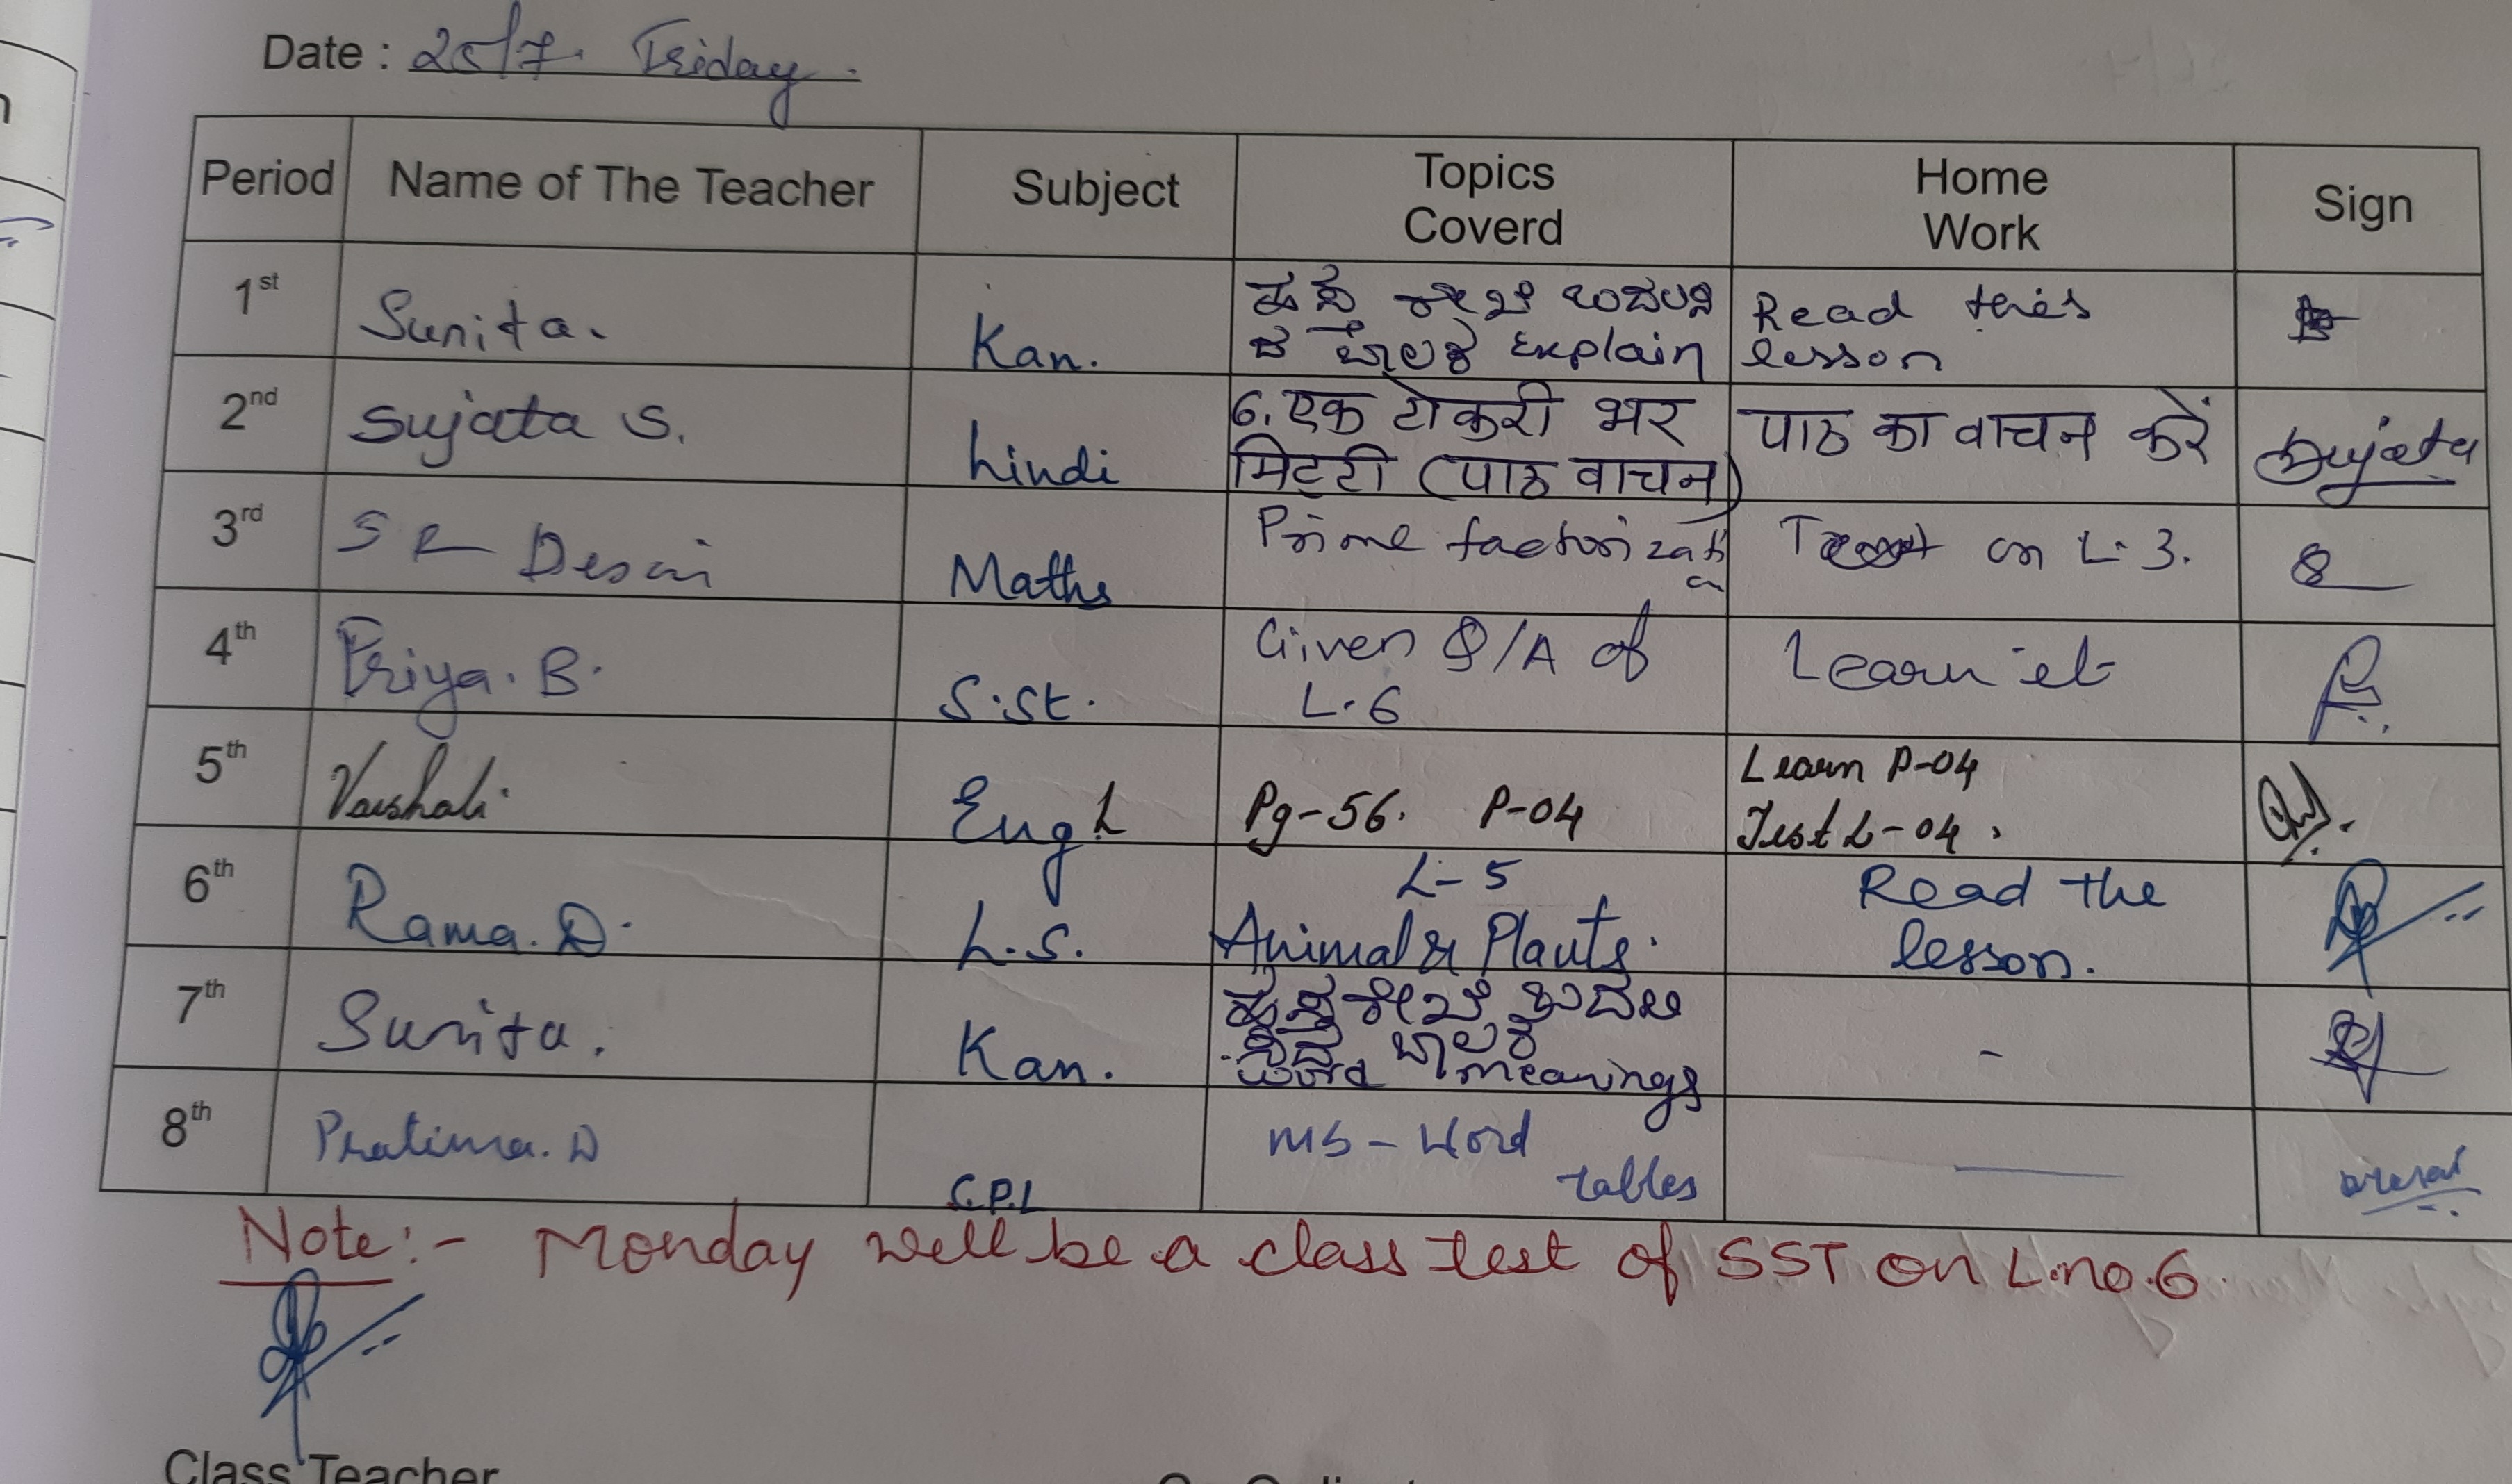 Date : 25/7. Friday.
Period Name of The Teacher Subject Topics Coverd Home Work Sign
1st Sunita. Kan. explain Read this lesson
2nd Sujata S. hindi 6. एक टोकरी भर मिट्टी (पाठ वाचन) पाठ का वाचन करें Sujata
3rd S R Desai Maths Prime factorization Test on L-3.
4th Priya. B. S.St. Given Q/A of L-6 Learn it
5th Vaishali Engh Pg-56. P-04 Learn P-04 Test L-04.
6th Rama. D. L.S. L-5 Animal & Plants. Read the lesson.
7th Sunita. Kan. meanings -
8th Pratima. D C.P.L MS-Word tables
Note:- Monday will be a class test of SST on L.no.6.
Class Teacher